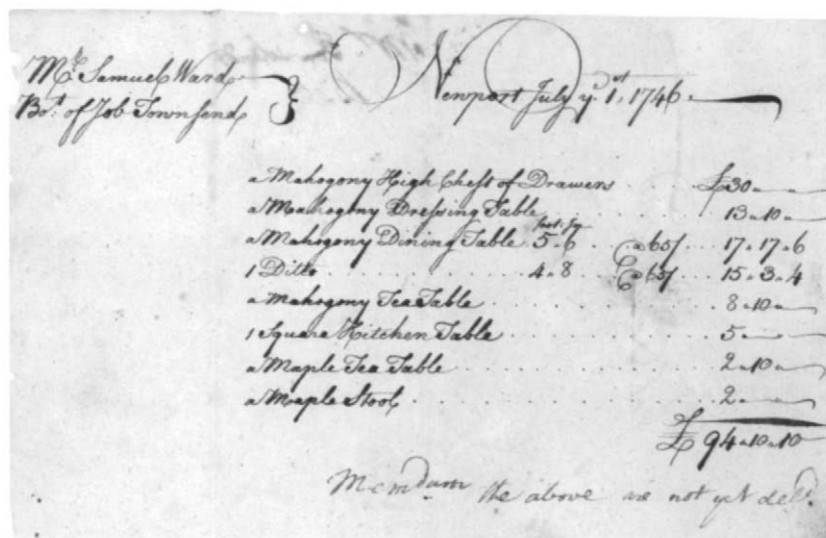 Mr. Samuel Ward
Bot. of Job Townsend
Newport July ye. 1st, 1746.
a Mahogony High Chest of Drawers £30 " "
a Mahogony Dressing Table 13 " 10 "
foot. In
a Mahogony Dining Table 5 " 6 @ 65/ 17 " 17 " 6
1 Ditto 4 " 8 @ 65/ 15 " 3 " 4
a Mahogony Tea Table 8 " 10 "
1 Square Kitchen Table 5 "
a Maple Tea Table 2 " 10 "
a Maple Stool 2 "
£ 94 " 10 " 10
the above are not yet deld.